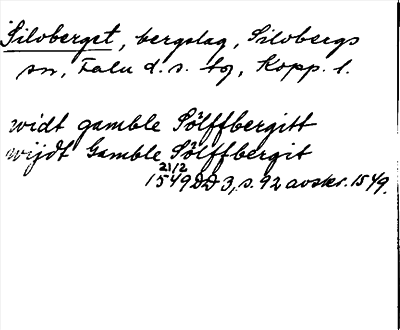 Silvberget, bergslag, Silvbergs
sn, Falu d. s. tg, Kopp. l.
widt gamble Sölffbergitt
wijdt Gamble Sölffbergit
21/2
1549 DD 3, s. 92 avskr. 1549.